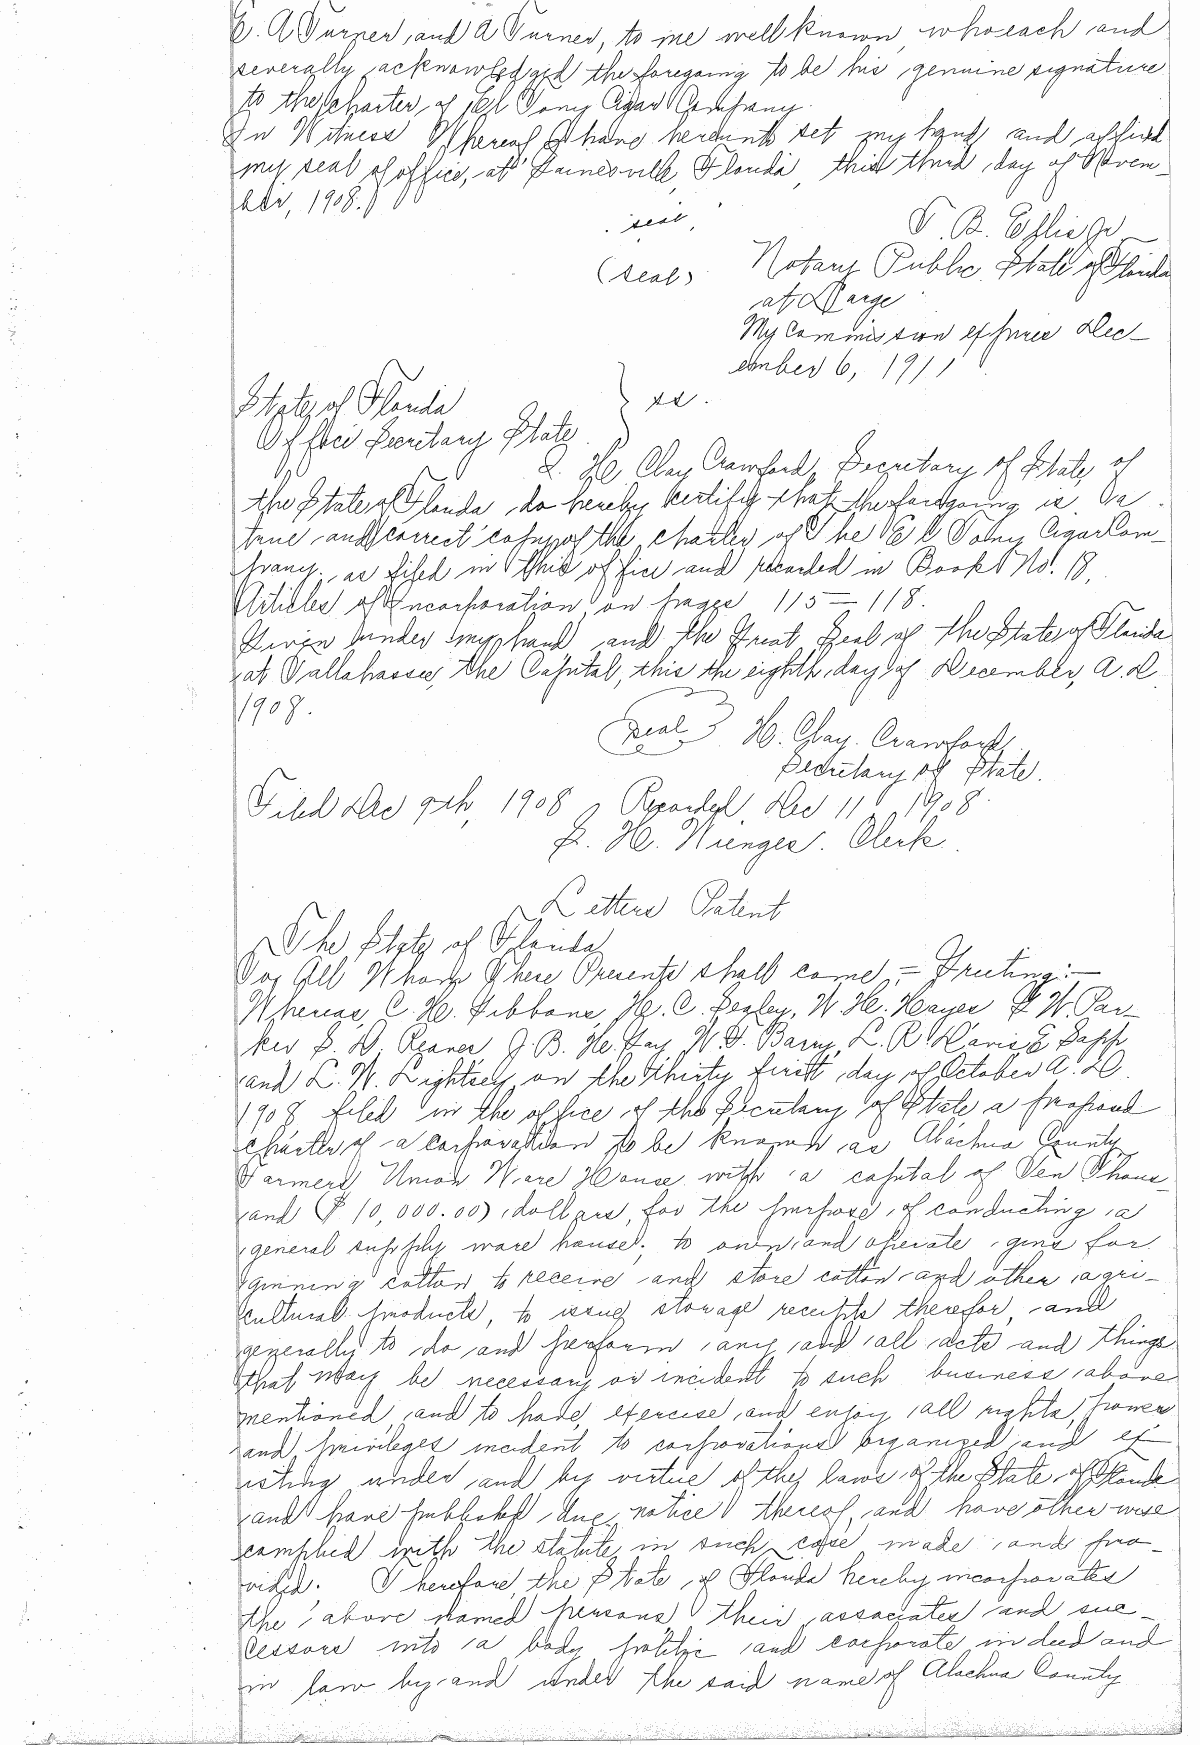 E. A Turner, and A Turner, to me well known, who each and
severally acknowledged the foregoing to be his genuine signature
to the charter of El Tony Cigar Company.
In Witness Whereof I have hereunto set my hand and affixed
my seal of office, at Gainesville, Florida, this third day of Novem-
ber, 1908.
seal
T. B. Ellis Jr
(seal)
Notary Public State of Florida
at Large
My Commission expires Dec-
ember 6, 1911
State of Florida
Office Secretary State } ss.
I. H. Clay Crawford, Secretary of State of
the State of Florida do hereby certify that the foregoing is a
true and correct copy of the charter of The El Tony Cigar Com-
pany, as filed in this office and recorded in Book No. 18,
Articles of Incorporation on pages 115-118.
Given under my hand and the Great Seal of the State of Florida
at Tallahassee, the Capital, this the eighth day of December, A.D.
1908.
Seal
H. Clay Crawford
Secretary of State.
Filed Dec 9th, 1908, Recorded Dec 11, 1908.
S. H. Wienges. Clerk.
Letters Patent
The State of Florida
To All Whom These Presents shall come, = Greeting:—
Whereas, C. H. Gibbons, H. C. W. H. Hayes W. Par-
ker S. D. Reaves, J. B. W. Barry, L. R. Davis E Sapp
and L. W. Lightsey, on the thirty first day of October A.D.
1908 filed in the office of the Secretary of State a proposed
charter of a corporation to be known as Alachua County
Farmers Union Ware House with a capital of Ten Thous-
and ($10,000.00) dollars, for the purpose of conducting a
general supply ware house; to own and operate gins for
ginning cotton to receive and store cotton and other agri-
cultural products, to issue storage receipts therefor, and
generally to do and perform any and all acts and things
that may be necessary or incident to such business above
mentioned, and to have, exercise, and enjoy all rights, powers
and privileges incident to corporations organized and ex
isting under and by virtue of the laws of the State of Florida
and have published due notice thereof, and have other wise
complied with the statute in such case made and pro-
vided. Therefore, the State of Florida hereby incorporates
the above named persons their associates and suc-
cessors into a body politic and corporate in deed and
in law by and under the said name of Alachua County